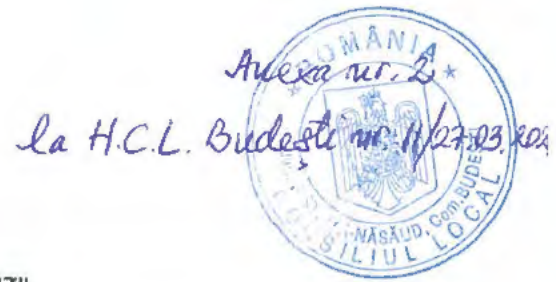 Anexa nr. 2
la H.C.L. Budești nr. 11/27.03.202
ROMÂNIA
NĂSĂUD, Com. BUDEȘTI
CONSILIUL LOCAL